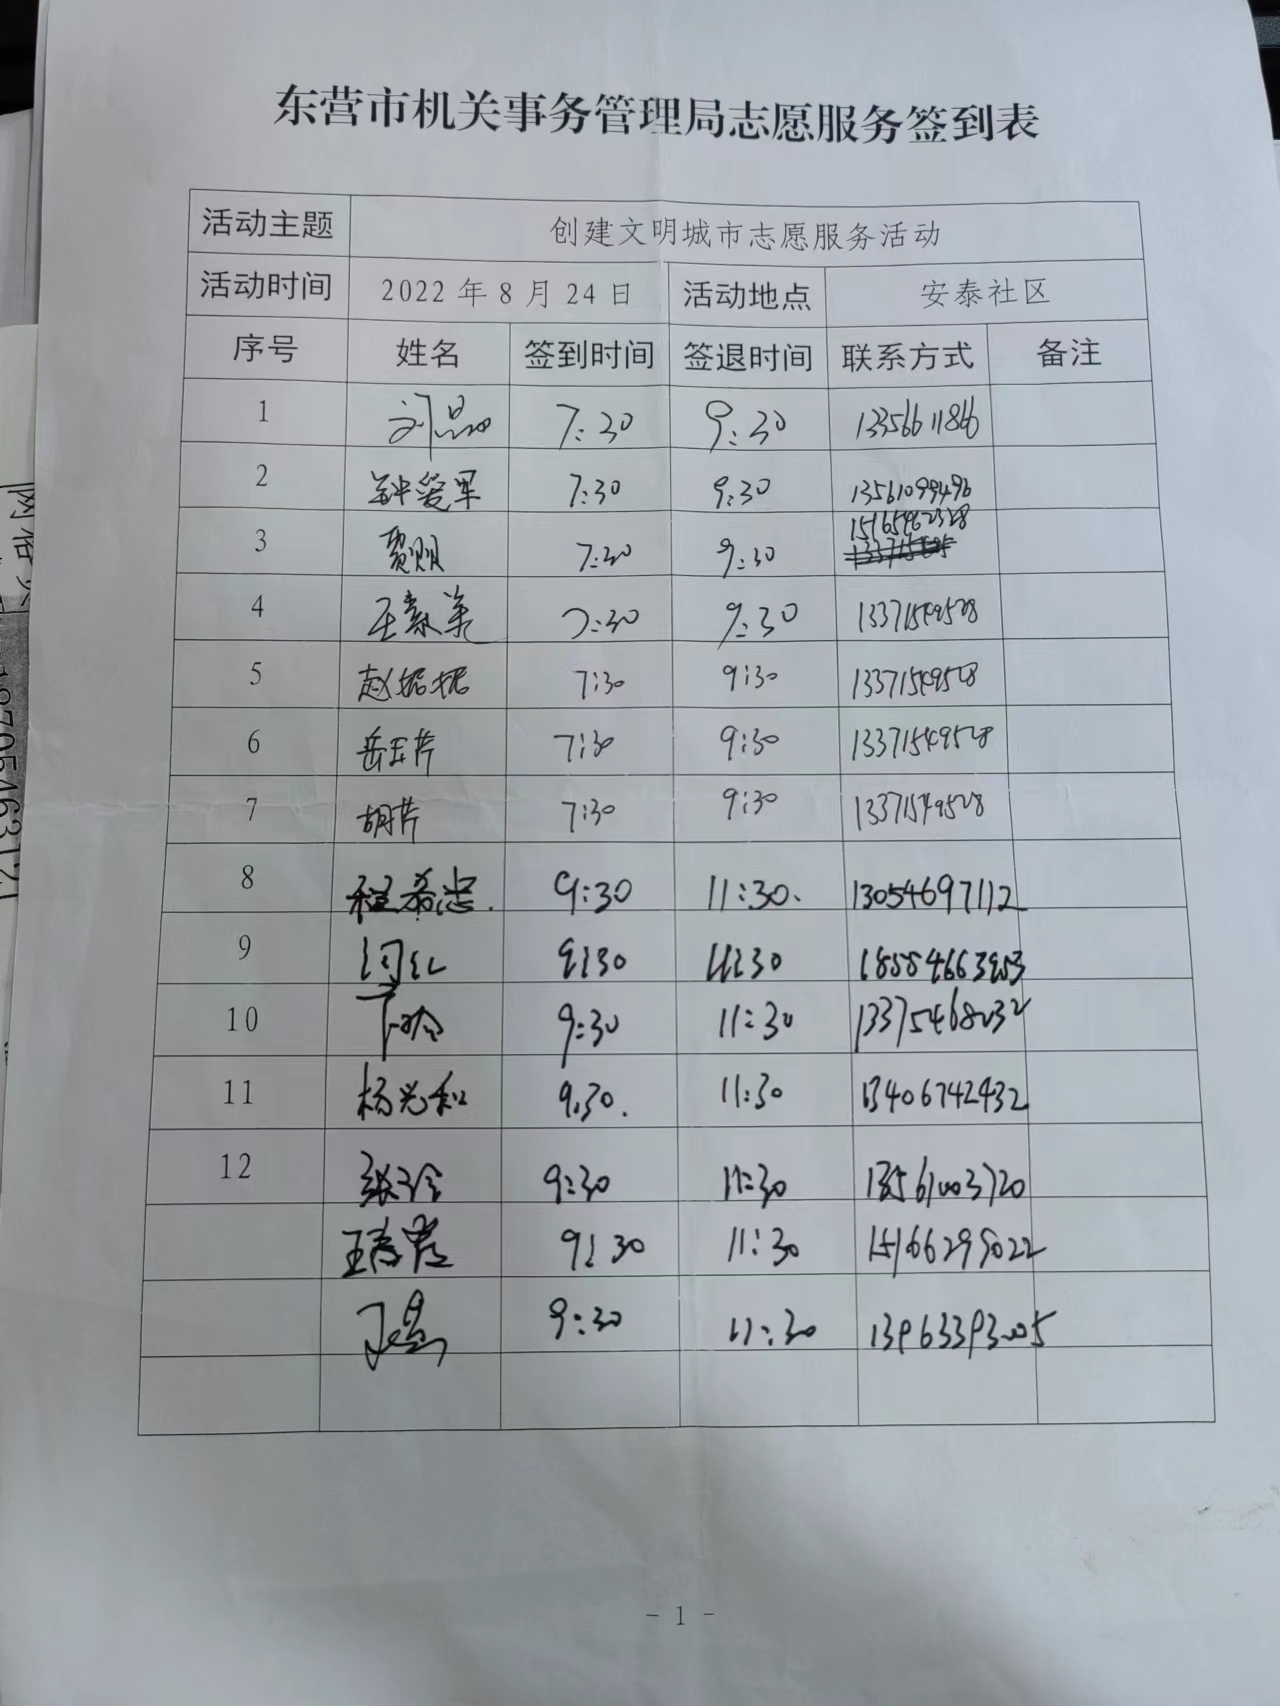 东营市机关事务管理局志愿服务签到表
活动主题 创建文明城市志愿服务活动
活动时间 2022年8月24日 活动地点 安泰社区
序号 姓名 签到时间 签退时间 联系方式 备注
1 7:30 9:30
2 钟爱军 7:30 9:30 13561099496
15165462328
3 贾明 7:30 9:30
4 王素美 7:30 9:30 13371549528
5 赵振振 7:30 9:30 13371549528
6 岳玉芹 7:30 9:30 13371549528
7 胡芹 7:30 9:30 13371549528
8 程希忠 9:30 11:30 13054697112
9 闫红 9:30 11:30
10 9:30 11:30 13375468232
11 杨兴和 9:30 11:30 13406742432
12 张玲 9:30 11:30 13561003720
9:30 11:30 15166299022
9:30 11:30 13963393005
- 1 -